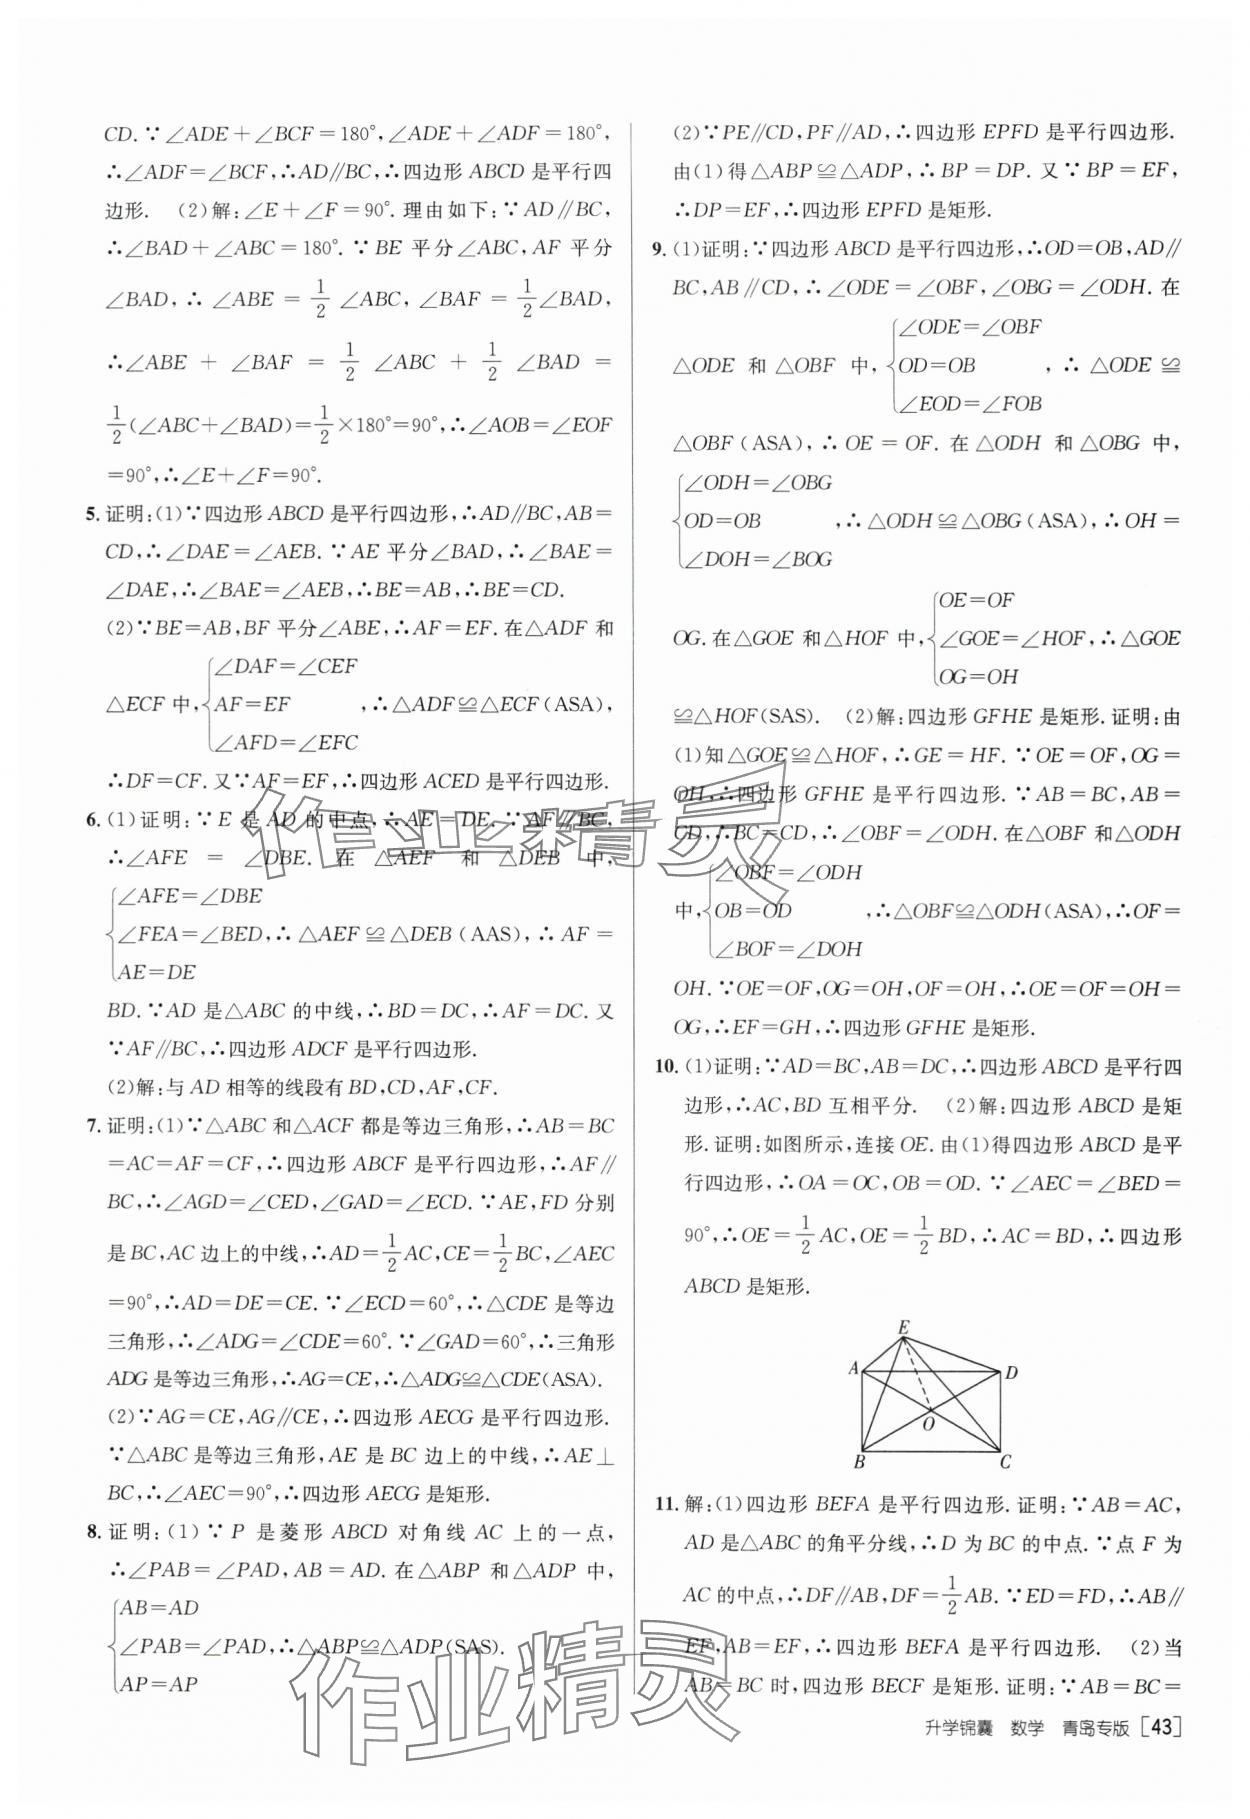 CD.∵∠ADE+∠BCF=180°,∠ADE+∠ADF=180°,
∴∠ADF=∠BCF,∴AD∥BC,∴四边形 ABCD 是平行四
边形. (2)解:∠E+∠F=90°.理由如下:∵AD∥BC,
∴∠BAD+∠ABC=180°.∵BE 平分∠ABC,AF 平分
∠BAD,∴∠ABE=1/2∠ABC,∠BAF=1/2∠BAD,
∴∠ABE+∠BAF=1/2∠ABC+1/2∠BAD=
1/2(∠ABC+∠BAD)=1/2×180°=90°,∴∠AOB=∠EOF
=90°,∴∠E+∠F=90°.
5. 证明:(1)∵四边形 ABCD 是平行四边形,∴AD∥BC,AB=
CD,∴∠DAE=∠AEB.∵AE 平分∠BAD,∴∠BAE=
∠DAE,∴∠BAE=∠AEB,∴BE=AB,∴BE=CD.
(2)∵BE=AB,BF 平分∠ABE,∴AF=EF.在△ADF 和
∠DAF=∠CEF
△ECF 中,{AF=EF ,∴△ADF≌△ECF(ASA),
∠AFD=∠EFC
∴DF=CF.又∵AF=EF,∴四边形 ACED 是平行四边形.
6. (1)证明:∵E 是 AD 的中点,∴AE=DE.∵AF∥BC,
∴∠AFE=∠DBE.在△AEF 和△DEB 中,
∠AFE=∠DBE
{∠FEA=∠BED,∴△AEF≌△DEB(AAS),∴AF=
AE=DE
BD.∵AD 是△ABC 的中线,∴BD=DC,∴AF=DC.又
∵AF∥BC,∴四边形 ADCF 是平行四边形.
(2)解:与 AD 相等的线段有 BD,CD,AF,CF.
7. 证明:(1)∵△ABC 和△ACF 都是等边三角形,∴AB=BC
=AC=AF=CF,∴四边形 ABCF 是平行四边形,∴AF∥
BC,∴∠AGD=∠CED,∠GAD=∠ECD.∵AE,FD 分别
是 BC,AC 边上的中线,∴AD=1/2AC,CE=1/2BC,∠AEC
=90°,∴AD=DE=CE.∵∠ECD=60°,∴△CDE 是等边
三角形,∴∠ADG=∠CDE=60°.∵∠GAD=60°,∴三角形
ADG 是等边三角形,∴AG=CE,∴△ADG≌△CDE(ASA).
(2)∵AG=CE,AG∥CE,∴四边形 AECG 是平行四边形.
∵△ABC 是等边三角形,AE 是 BC 边上的中线,∴AE⊥
BC,∴∠AEC=90°,∴四边形 AECG 是矩形.
8. 证明:(1)∵P 是菱形 ABCD 对角线 AC 上的一点,
∴∠PAB=∠PAD,AB=AD.在△ABP 和△ADP 中,
AB=AD
{∠PAB=∠PAD,∴△ABP≌△ADP(SAS).
AP=AP
(2)∵PE∥CD,PF∥AD,∴四边形 EPFD 是平行四边形.
由(1)得△ABP≌△ADP,∴BP=DP.又∵BP=EF,
∴DP=EF,∴四边形 EPFD 是矩形.
9. (1)证明:∵四边形 ABCD 是平行四边形,∴OD=OB,AD∥
BC,AB∥CD,∴∠ODE=∠OBF,∠OBG=∠ODH.在
∠ODE=∠OBF
△ODE 和△OBF 中,{OD=OB ,∴△ODE≌
∠EOD=∠FOB
△OBF(ASA),∴OE=OF.在△ODH 和△OBG 中,
∠ODH=∠OBG
{OD=OB ,∴△ODH≌△OBG(ASA),∴OH=
∠DOH=∠BOG
OE=OF
OG.在△GOE 和△HOF 中,{∠GOE=∠HOF,∴△GOE
OG=OH
≌△HOF(SAS). (2)解:四边形 GFHE 是矩形.证明:由
(1)知△GOE≌△HOF,∴GE=HF.∵OE=OF,OG=
OH,∴四边形 GFHE 是平行四边形.∵AB=BC,AB=
CD,∴BC=CD,∴∠OBF=∠ODH.在△OBF 和△ODH
∠OBF=∠ODH
中,{OB=OD ,∴△OBF≌△ODH(ASA),∴OF=
∠BOF=∠DOH
OH.∵OE=OF,OG=OH,OF=OH,∴OE=OF=OH=
OG,∴EF=GH,∴四边形 GFHE 是矩形.
10. (1)证明:∵AD=BC,AB=DC,∴四边形 ABCD 是平行四
边形,∴AC,BD 互相平分. (2)解:四边形 ABCD 是矩
形.证明:如图所示,连接 OE.由(1)得四边形 ABCD 是平
行四边形,∴OA=OC,OB=OD.∵∠AEC=∠BED=
90°,∴OE=1/2AC,OE=1/2BD,∴AC=BD,∴四边形
ABCD 是矩形.
E
A D
O
B C
11. 解:(1)四边形 BEFA 是平行四边形.证明:∵AB=AC,
AD 是△ABC 的角平分线,∴D 为 BC 的中点.∵点 F 为
AC 的中点,∴DF∥AB,DF=1/2AB.∵ED=FD,∴AB∥
EF,AB=EF,∴四边形 BEFA 是平行四边形. (2)当
AB=BC 时,四边形 BECF 是矩形.证明:∵AB=BC=
升学锦囊 数学 青岛专版 [43]
作业精灵
作业精灵